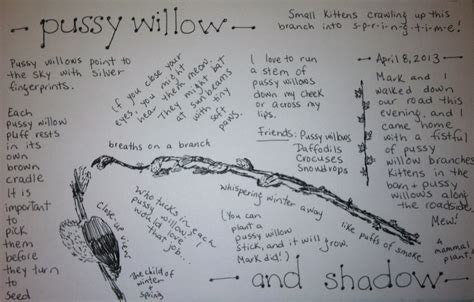 pussy willow
Small Kittens crawling up this
branch into s-p-r-i-n-g-t-i-m-e!
Pussy willows point to
the sky with silver
fingerprints.
Each
pussy willow
puff rests
in its
own
brown
cradle
It is
important
to
pick
them
before
they turn
to
seed
If you close your
eyes, you might
hear them meow.
They might bat
at sun beams
with tiny
soft
paws.
I love to run
a stem of
pussy willows
down my cheek
or across my
lips.
Friends: Pussy willows
Daffodils
Crocuses
Snowdrops
April 8, 2013
Mark and I
walked down
our road this
evening, and I
came home
with a fistful
of pussy
willow branches
Kittens in the
barn + pussy
willows along
the roadside.
Mew!
breaths on a branch
whispering winter away
like puffs of smoke
Who tucks in each
pussy willow?
I would love
that job...
close-up view
The child of
winter
+
spring
(You can
plant a
pussy willow
stick, and it will grow.
Mark did!)
A
pussywillow
plant.
and shadow